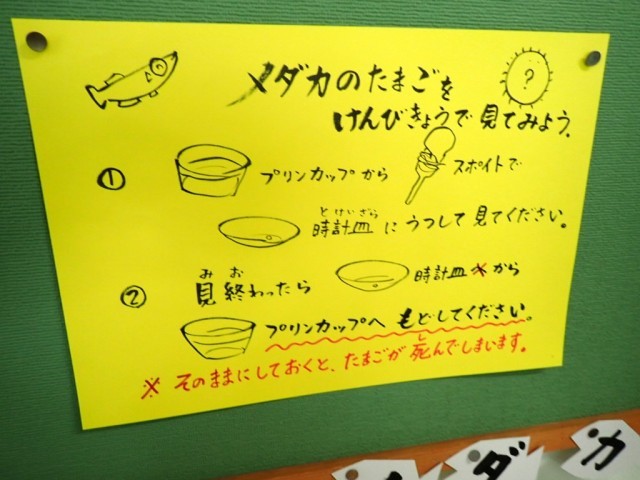 メダカのたまごを
けんびきょうで見てみよう。
?
① プリンカップから スポイトで
時計皿にうつして見てください。
とけいざら
② 見終わったら 時計皿から
みお
プリンカップへもどしてください。
※そのままにしておくと、たまごが死んでしまいます。
し
ダカ